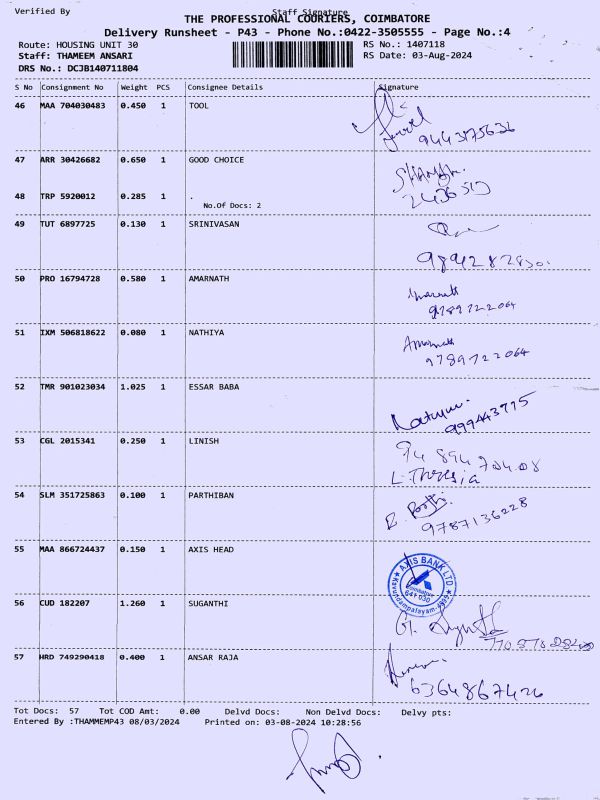 Verified By
Staff Signature
THE PROFESSIONAL COURIERS, COIMBATORE
Delivery Runsheet - P43 - Phone No.:0422-3505555 - Page No.:4
Route: HOUSING UNIT 30
RS No.: 1407118
Staff: THAMEEM ANSARI
RS Date: 03-Aug-2024
DRS No.: DCJB140711804
S No Consignment No Weight PCS Consignee Details Signature
46 MAA 704030483 0.450 1 TOOL
9443175636
47 ARR 30426682 0.650 1 GOOD CHOICE
48 TRP 5920012 0.285 1 .
No.Of Docs: 2
49 TUT 6897725 0.130 1 SRINIVASAN
50 PRO 16794728 0.580 1 AMARNATH
Amarnath
9789722064
51 IXM 506818622 0.080 1 NATHIYA
Amarnath
9789722064
52 TMR 901023034 1.025 1 ESSAR BABA
53 CGL 2015341 0.250 1 LINISH
L. Theresia
54 SLM 351725863 0.100 1 PARTHIBAN
9787136228
55 MAA 866724437 0.150 1 AXIS HEAD
AXIS BANK LTD
Coimbatore
641 030
Kavundampalayam
56 CUD 182207 1.260 1 SUGANTHI
57 HRD 749290418 0.400 1 ANSAR RAJA
6364867426
Tot Docs: 57 Tot COD Amt: 0.00 Delvd Docs: Non Delvd Docs: Delvy pts:
Entered By :THAMMEMP43 08/03/2024 Printed on: 03-08-2024 10:28:56